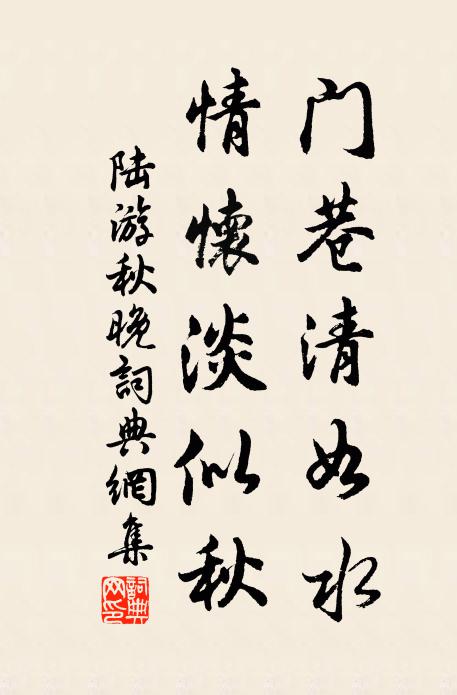 门巷清如水
情懷淡似秋
陆游秋晚詞典網集
詞典网印